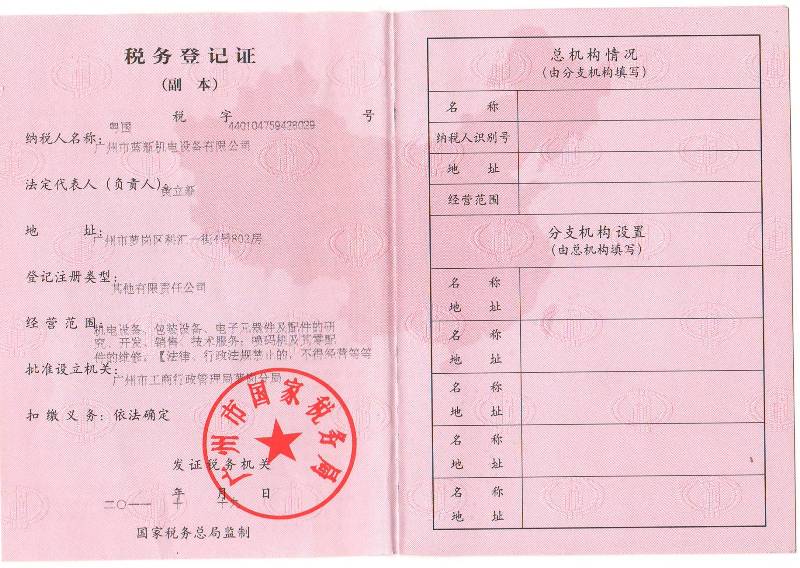 税务登记证
(副 本)
粤国 税 字 440104759428029 号
纳税人名称：
广州市蓝新机电设备有限公司
法定代表人（负责人）：
黄立新
地 址：
广州市萝岗区科汇一街4号802房
登记注册类型：
其他有限责任公司
经营范围：
机电设备、包装设备、电子元器件及配件的研
究、开发、销售、技术服务；喷码机及其零配
件的维修。【法律、行政法规禁止的，不得经营等等
批准设立机关：
广州市工商行政管理局萝岗分局
扣缴义务：依法确定
广州市国家税务局
发证税务机关
二〇一一 年 十 月 十六 日
国家税务总局监制
总机构情况
(由分支机构填写)
名 称
纳税人识别号
地 址
经营范围
分支机构设置
(由总机构填写)
名 称
地 址
名 称
地 址
名 称
地 址
名 称
地 址
名 称
地 址